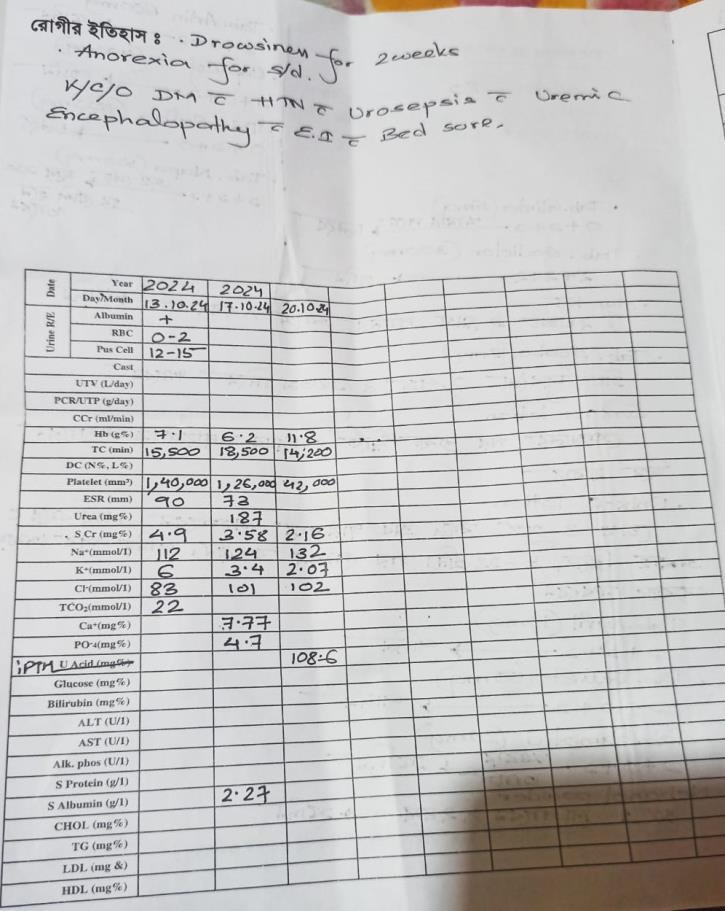 রোগীর ইতিহাস : . Drowsiness for 2 weeks
. Anorexia for s/d.
K/C/O DM c̄ HTN c̄ Urosepsis c̄ Uremic
Encephalopathy c̄ E.I c̄ Bed sore.
Date Year 2024 2024
Day/Month 13.10.24 17.10.24 20.10.24
Urine R/E Albumin +
RBC 0-2
Pus Cell 12-15
Cast
UTV (L/day)
PCR/UTP (g/day)
CCr (ml/min)
Hb (g%) 7.1 6.2 11.8
TC (min) 15,500 18,500 14,200
DC (N%, L%)
Platelet (mm³) 1,40,000 1,26,000 42,000
ESR (mm) 90 73
Urea (mg%) 187
S Cr (mg%) 4.9 3.58 2.16
Na⁺(mmol/1) 112 124 132
K⁺(mmol/1) 6 3.4 2.07
Cl⁻(mmol/1) 83 101 102
TCO₂(mmol/1) 22
Ca⁺(mg%) 7.77
PO⁻₄(mg%) 4.7
iPTH U Acid (mg%) 108.6
Glucose (mg%)
Bilirubin (mg%)
ALT (U/1)
AST (U/1)
Alk. phos (U/1)
S Protein (g/1)
S Albumin (g/1) 2.27
CHOL (mg%)
TG (mg%)
LDL (mg &)
HDL (mg%)